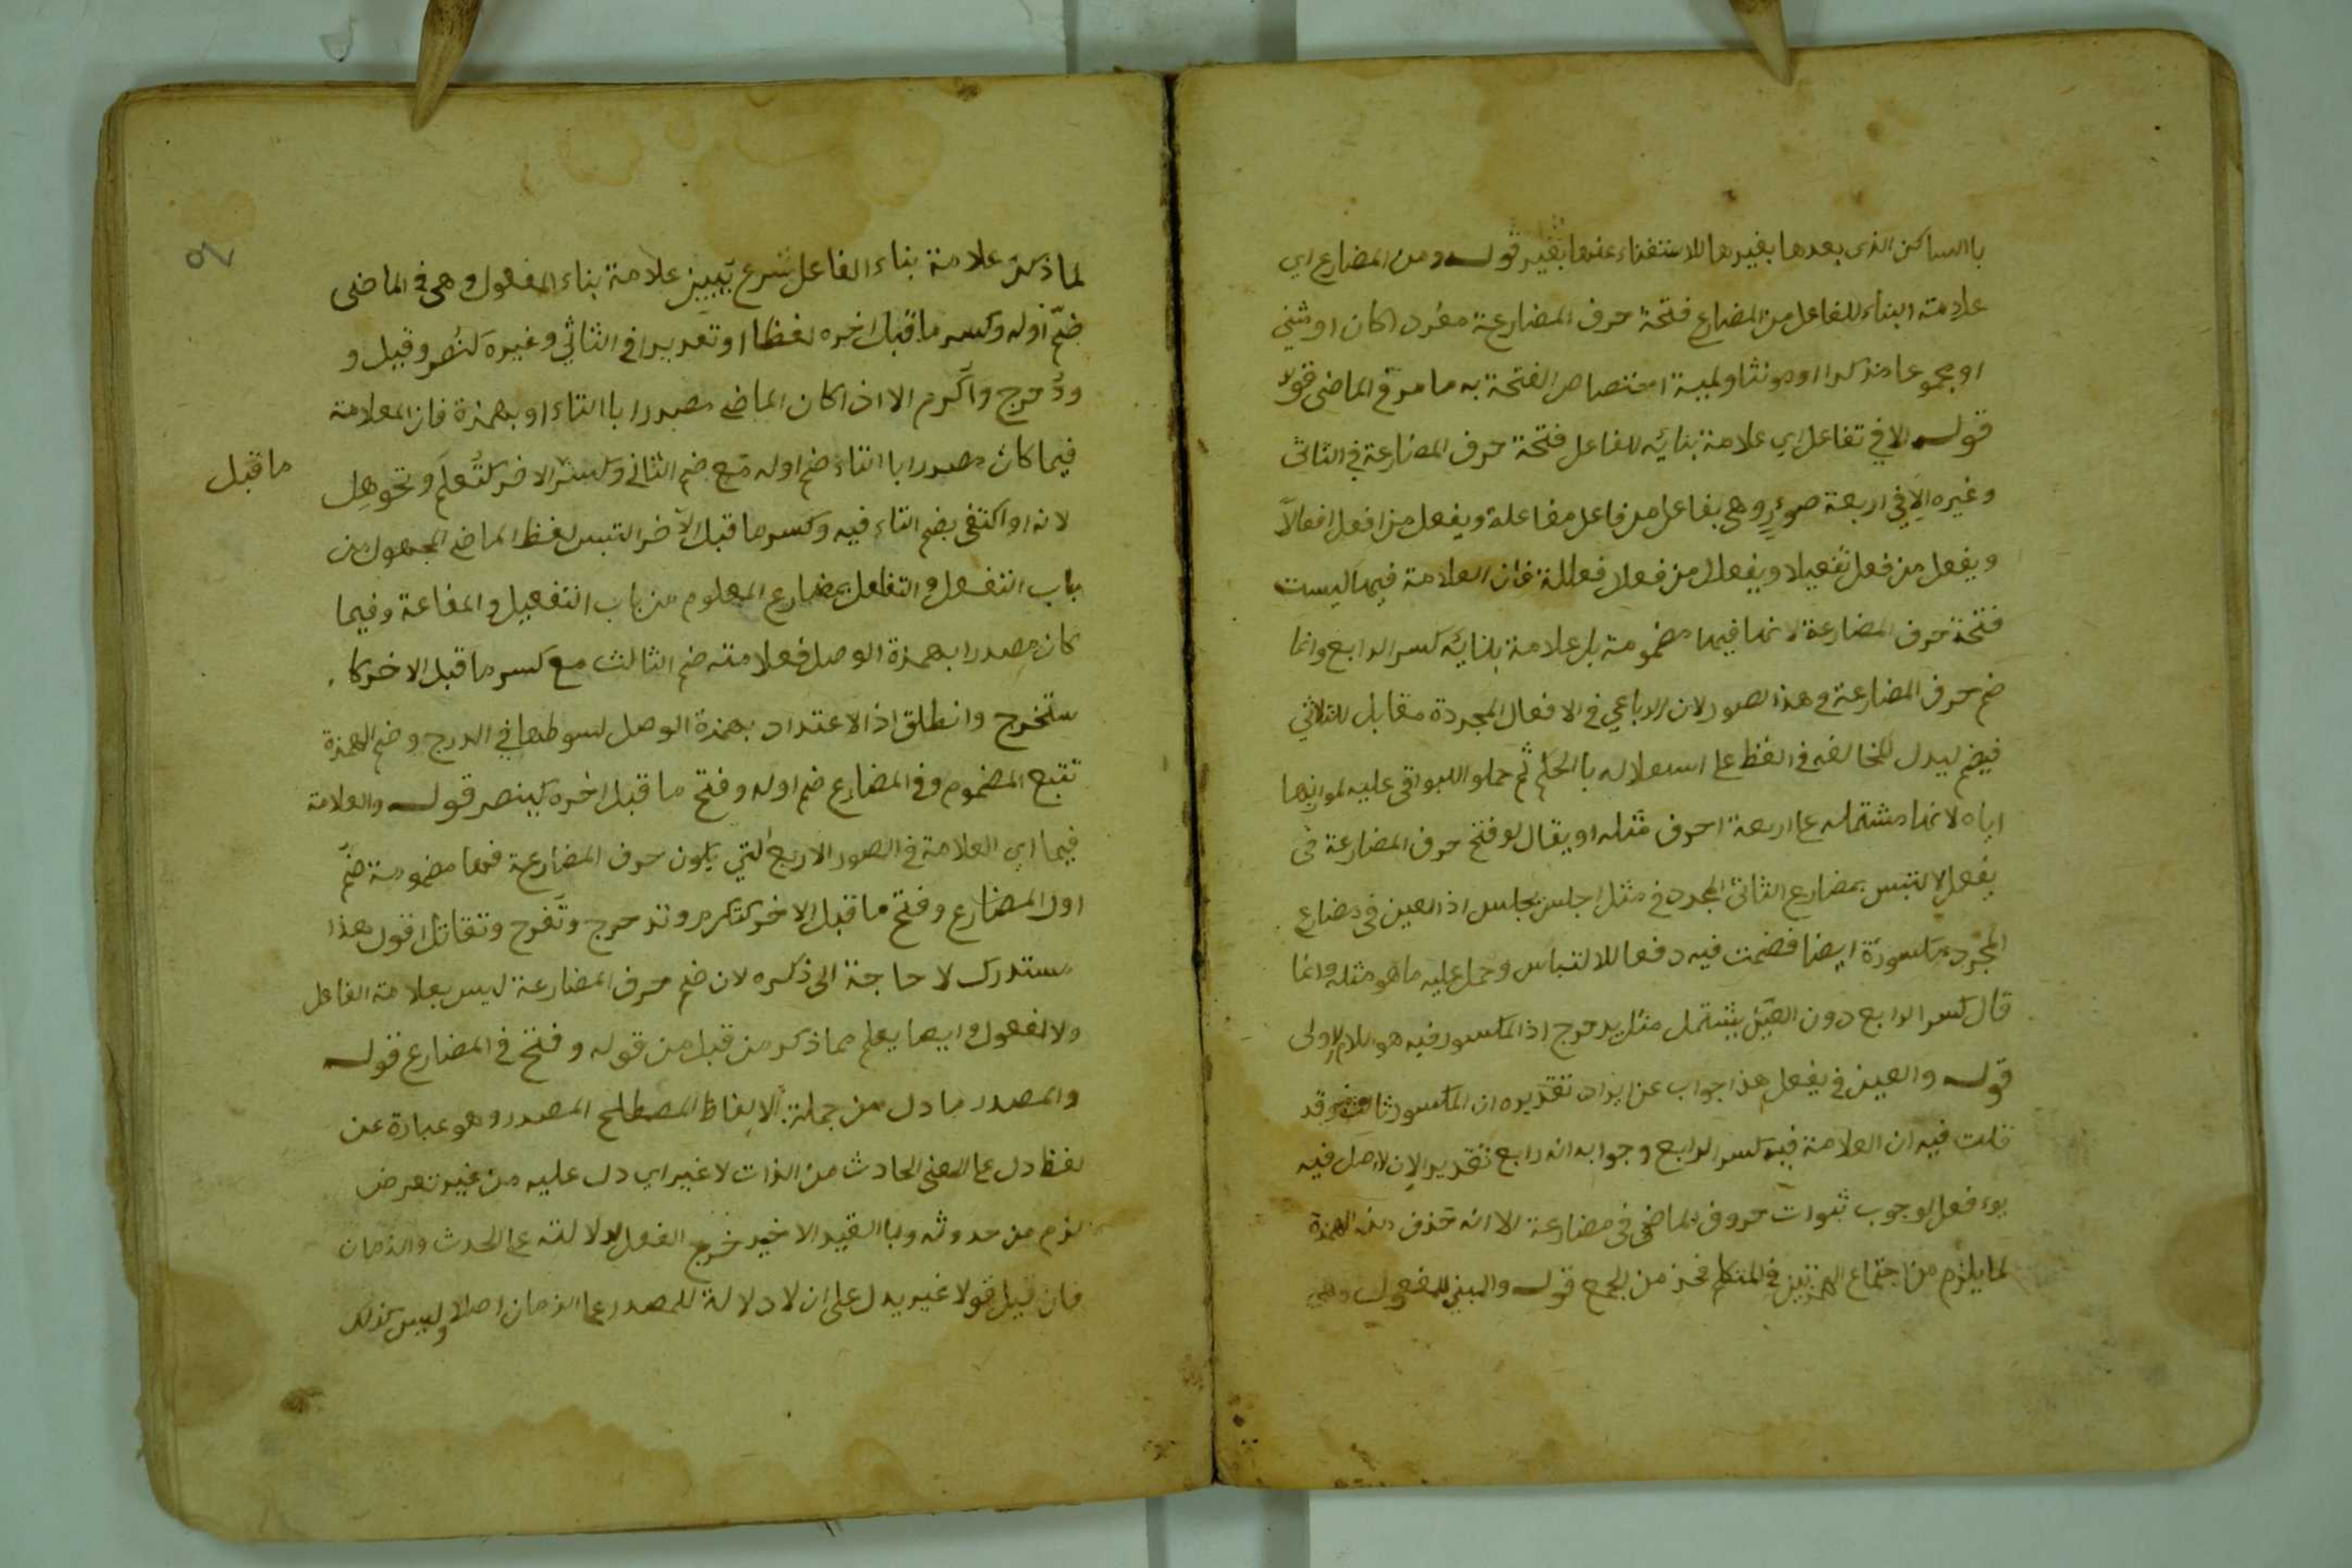 با الساكن الذى بعدها بغيرها للاستغناء عنها بغير قوله ومن المضارع اي
علامته البناء للفاعل من المضارع فتحة حرف المضارعة مفردا كان او مثنى
او مجموعا مذكرا او مونثا ولمية اختصاص الفتحة به ما مر في الماضى قولا
قوله الا في تفاعل اي علامة بنائه للفاعل فتحة حرف المضارعة في الثاثى
وغيره الا في اربعة صور وهى يفاعل من فاعل مفاعلة ويفعل من افعل افعالا
ويفعل من فعل تفعيلا ويفعلل من فعلل فعللة فان العلامة فيها ليست
فتحة حرف المضارعة لانها فيها مضمومة بل علامة بنائه كسر الرابع وانما
ضم حرف المضارعة في هذا الصور لان الرباعي في الافعال المجردة مقابل للثلاثي
فيضم ليدل المخالفه في الفظ على استعلاله با الحكم ثم حملو البواقى عليه لموازنها
اياه لانها مشتمله على اربعة احرف مثله او يقال لو فتح حرف المضارعة في
يفعل لالتبس بمضارع الثاثى المجرد في مثل اجلس يجلس اذ العين في مضارع
المجرد مكسورة ايضا فضمت فيه دفعا للالتباس وحمل عليه ما هو مثله وانما
قال كسر الرابع دون العين ليشتمل مثل يدحرج اذ المكسور فيه هو اللام الاولى
قوله والعين في يفعل هذا جواب عن ايراد تقديره ان المكسور ثالث وقد
قلت فيه ان العلامة فيه كسر الرابع وجوابه انه رابع تقديرا لان الاصل فيه
يوء فعل لوجوب ثبوات حروف الماضى في مضارعة الا انه حذف منه الهمزة
لما يلزم من اجتماع الهمزتين في المتكلم فحذ من الجمع قوله والمبنى للمفعول وهى
لما ذكر علامة بناء الفاعل شرع يبين علامة بناء المفعول وهى في الماضى
ضم اوله وكسر ما قبل اخره لفظا او تقديرا في الثاثي وغيره كنصر وقيل و
ودحرج واكرم الا اذا كان الماضى مصدرا با التاء او بهمزة فان العلامة
فيما كان مصدرا با التاء ضم اوله مع ضم الثانى وكسر الاخر كتعلم وتجوهل
ما قبل
لانه لو اكتفى بضم التاء فيه وكسر ما قبل الاخر التبس لفظ الماضى المجهول من
باب التفعل والتفاعل بمضارع المعلوم من باب التفعيل والمفاعة وفيما
كان مصدرا بهمزة الوصل فعلامته ضم الثالث مع كسر ما قبل الاخر كا
ستخرج وانطلق اذ الاعتداد بهمزة الوصل لسوطها في الدرج وضم الهمزة
تتبع المضموم وفى المضارع ضم اوله وفتح ما قبل اخره كينصر قوله والعلامة
فيما اي العلامة في الصور الاربع التي يكون حرف المضارعة فيها مضمومة ضم
اول المضارع وفتح ما قبل الاخر كتكرم وتدحرج وتفرح وتقاتل اقول هذا
مستدرك لا حاجة الى ذكره لان ضم حرف المضارعة ليس بعلامة الفاعل
ولا المفعول وايضا يعلم مما ذكر من قبل من قوله وفتح في المضارع قوله
والمصدر ما دل من جملة الالفاظ المصطلح المصدر وهو عبارة عن
لفظ دل على المعنى الحادث من الذات لا غير اي دل عليه من غير تعرض
لزم من حدوثه وبا القيد الاخير خرج الفعل لدلالته على الحدث والزمان
فان قيل قولا غير يدل على ان لا دلالة للمصدر على الزمان اصلا وليس كذلك